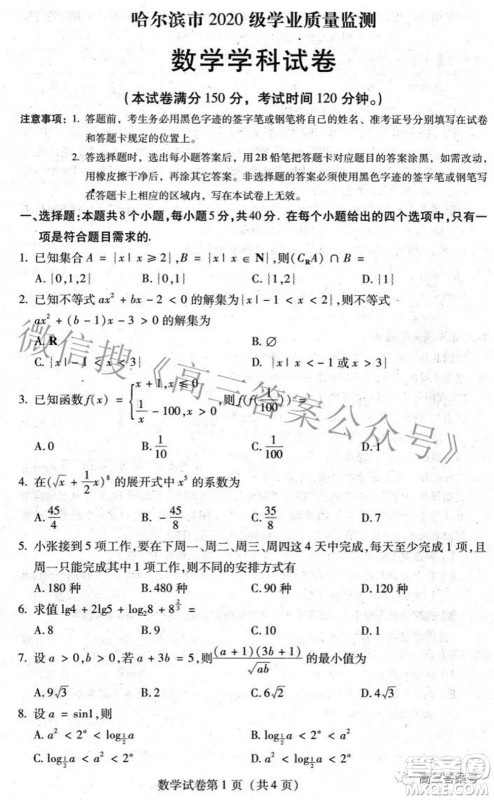 哈尔滨市 2020 级学业质量监测
数学学科试卷
(本试卷满分 150 分，考试时间 120 分钟。)
注意事项：1. 答题前，考生务必用黑色字迹的签字笔或钢笔将自己的姓名、准考证号分别填写在试卷
和答题卡规定的位置上。
2. 答选择题时，选出每小题答案后，用 2B 铅笔把答题卡对应题目的答案涂黑，如需改动，
用橡皮擦干净后，再涂其它答案。非选择题的答案必须使用黑色字迹的签字笔或钢笔写
在答题卡上相应的区域内，写在本试卷上无效。
一、选择题：本题共 8 个小题，每小题 5 分，共 40 分．在每小题给出的四个选项中，只有一
项是符合题目要求的．
1. 已知集合 A = {x | x ≥ 2}，B = {x | x ∈ N}，则(C_R A) ∩ B =
A. {0,1,2} B. {0,1} C. {1,2} D. {1}
2. 已知不等式 ax² + bx - 2 < 0 的解集为 {x | -1 < x < 2}，则不等式
ax² + (b - 1)x - 3 > 0 的解集为
A. R B. ∅
C. {x | -1 < x < 3} D. {x | x < -1 或 x > 3}
3. 已知函数 f(x) = { x + 1, x ≤ 0; 1/x - 100, x > 0 ，则 f(f(1/100)) =
A. 0 B. 1/10 C. 1/100 D. 1
4. 在(√x + 1/2 x)⁸ 的展开式中 x⁵ 的系数为
A. 45/4 B. -45/8 C. 35/8 D. 7
5. 小张接到 5 项工作，要在下周一、周二、周三、周四这 4 天中完成，每天至少完成 1 项，且
周一只能完成其中 1 项工作，则不同的安排方式有
A. 180 种 B. 480 种 C. 90 种 D. 120 种
6. 求值 lg4 + 2lg5 + log₂8 + 8^(2/3) =
A. 8 B. 9 C. 10 D. 1
7. 设 a > 0, b > 0，若 a + 3b = 5，则 (a + 1)(3b + 1)/√(ab) 的最小值为
A. 9√3 B. 2 C. 6√2 D. 4√3
8. 设 a = sin1，则
A. a² < 2^a < log_(1/2) a B. log_(1/2) a < 2^a < a²
C. log_(1/2) a < a² < 2^a D. a² < log_(1/2) a < 2^a
数学试卷第 1 页（共 4 页）
微信搜《高三答案公众号》
答案圈
高三答案号